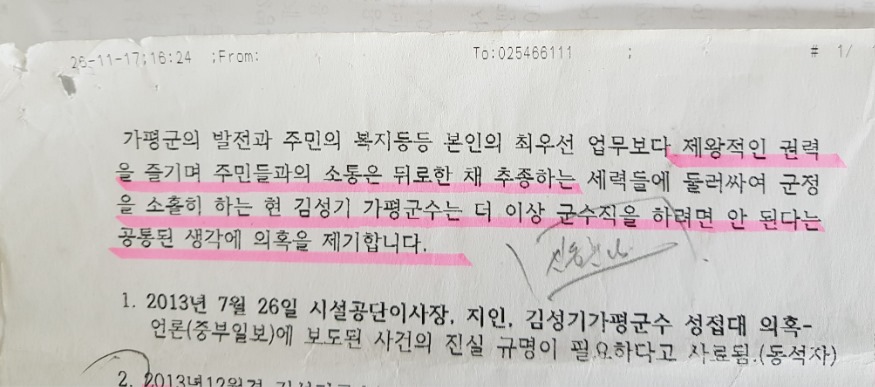 26-11-17;16:24 ;From: To:025466111 ; # 1/
가평군의 발전과 주민의 복지등등 본인의 최우선 업무보다 제왕적인 권력
을 즐기며 주민들과의 소통은 뒤로한 채 추종하는 세력들에 둘러싸여 군정
을 소홀히 하는 현 김성기 가평군수는 더 이상 군수직을 하려면 안 된다는
공통된 생각에 의혹을 제기합니다.
1. 2013년 7월 26일 시설공단이사장, 지인, 김성기가평군수 성접대 의혹-
언론(중부일보)에 보도된 사건의 진실 규명이 필요하다고 사료됨.(동석자)
2. 2013년12월경